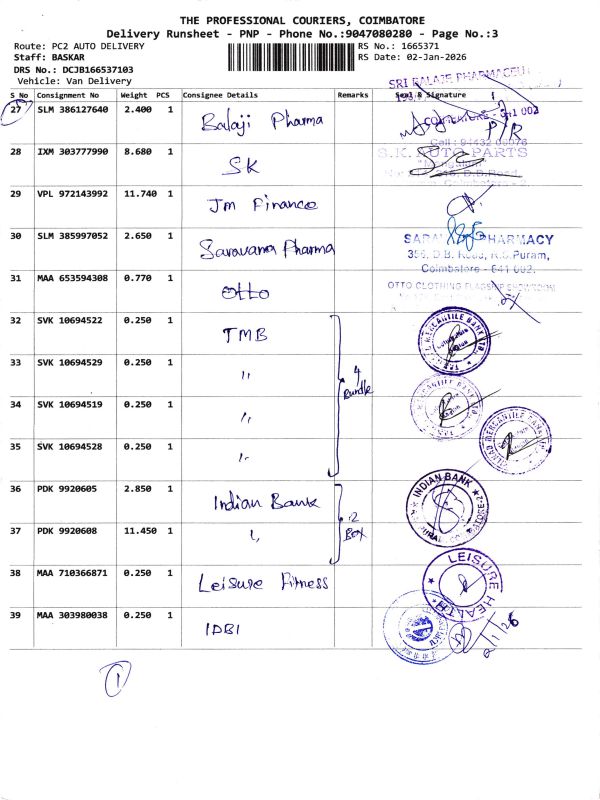 THE PROFESSIONAL COURIERS, COIMBATORE
Delivery Runsheet - PNP - Phone No.:9047080280 - Page No.:3
Route: PC2 AUTO DELIVERY RS No.: 1665371
Staff: BASKAR RS Date: 02-Jan-2026
DRS No.: DCJB166537103
Vehicle: Van Delivery
S No Consignment No Weight PCS Consignee Details Remarks Seal & Signature
27 SLM 386127640 2.400 1 Balaji Pharma
SRI BALAJE PHARMACEU
COIMBATORE - 641 002
Cell : 94432 06076
28 IXM 303777990 8.680 1 SK
S.K. AUTO PARTS
29 VPL 972143992 11.740 1 Jm Finance
30 SLM 385997052 2.650 1 Saravana Pharma
SARA PHARMACY
356, D.B. Road, R.S. Puram,
Coimbatore - 641 002.
31 MAA 653594308 0.770 1 Otto
OTTO CLOTHING FLAGSHIP SHOWROOM
32 SVK 10694522 0.250 1 TMB
33 SVK 10694529 0.250 1 "
4 Bundle
34 SVK 10694519 0.250 1 "
35 SVK 10694528 0.250 1 "
MERCANTILE BANK LTD.
36 PDK 9920605 2.850 1 Indian Bank
INDIAN BANK
37 PDK 9920608 11.450 1 "
2 Box
38 MAA 710366871 0.250 1 Leisure Fitness
LEISURE HEALTH
39 MAA 303980038 0.250 1 IDBI
2/1/26
1